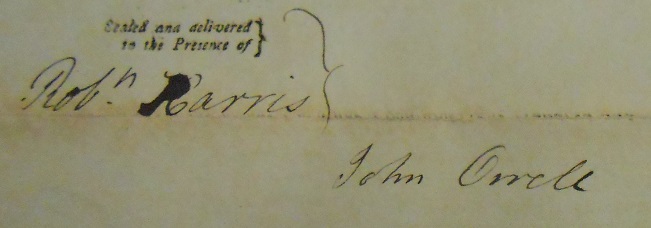 Sealed and delivered
in the Presence of
Robn Harris
John